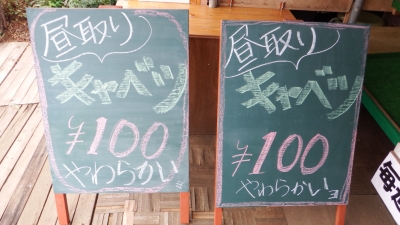 昼取り
キャベツ
¥100
やわらかい
昼取り
キャベツ
¥100
やわらかいョ